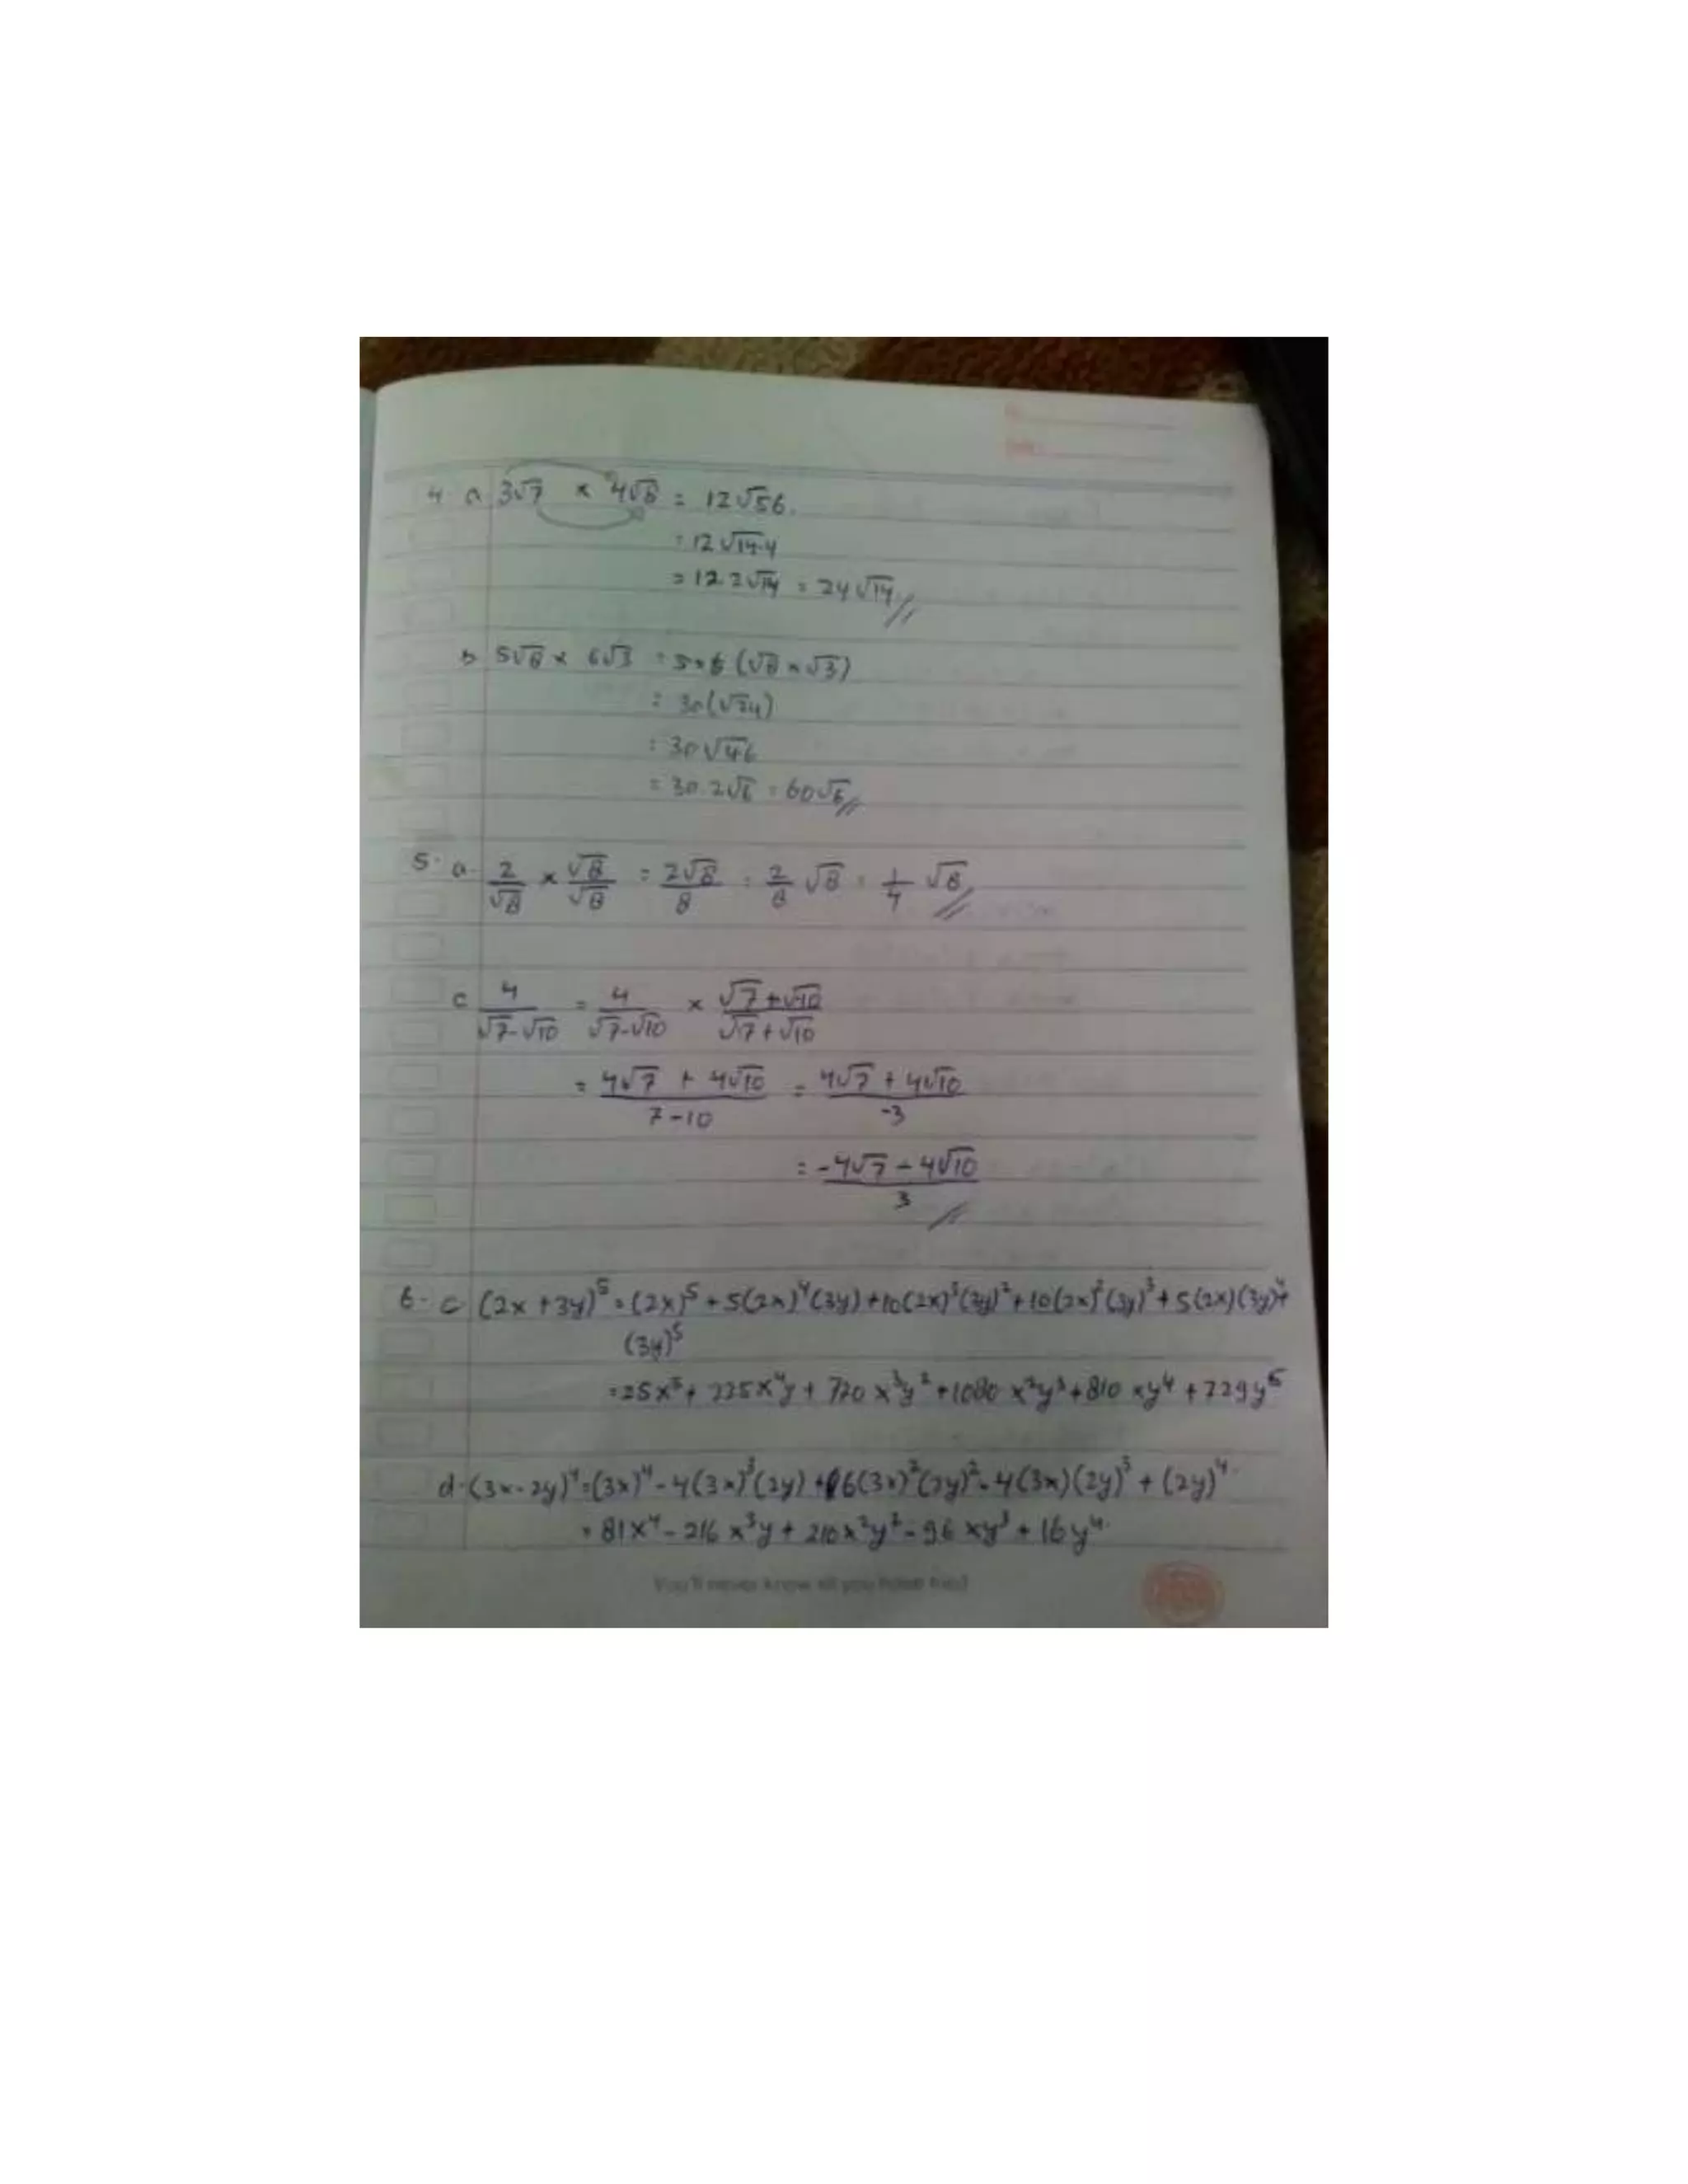 4 a 3√7 × 4√8 = 12√56.
= 12√14.4
= 12.2√14 = 24√14 //
b 5√8 × 6√3 = 5×6 (√8 × √3)
= 30(√24)
= 30√46
= 30.2√6 = 60√6 //
5. a. 2/√8 × √8/√8 = 2√8/8 = 2/8 √8 = 1/4 √8 //
c 4/(√7-√10) = 4/(√7-√10) × (√7+√10)/(√7+√10)
= (4√7 + 4√10)/(7-10) = (4√7 + 4√10)/-3
= (-4√7 - 4√10)/3 //
6. c (2x + 3y)⁵ = (2x)⁵ + 5(2x)⁴(3y) + 10(2x)³(3y)² + 10(2x)²(3y)³ + 5(2x)(3y)⁴ +
(3y)⁵
= 25x⁵ + 225x⁴y + 720x³y² + 1080x²y³ + 810xy⁴ + 229y⁵
d. (3x-2y)⁴ = (3x)⁴ - 4(3x)³(2y) + 6(3x)²(2y)² - 4(3x)(2y)³ + (2y)⁴.
= 81x⁴ - 216x³y + 210x²y² - 96xy³ + 16y⁴.
You'll never know till you have tried